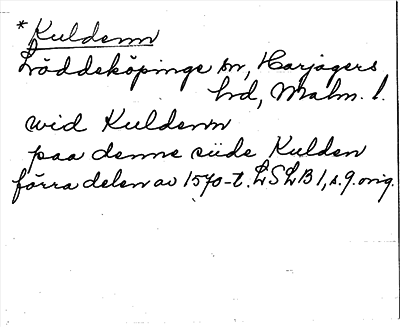 *Kuldenn
Löddeköpinge sn, Harjagers
hd, Malm. l.
wid Kuldenn
paa denne siide Kulden
förra delen av 1570-t. LSLB 1, s. 9. orig.